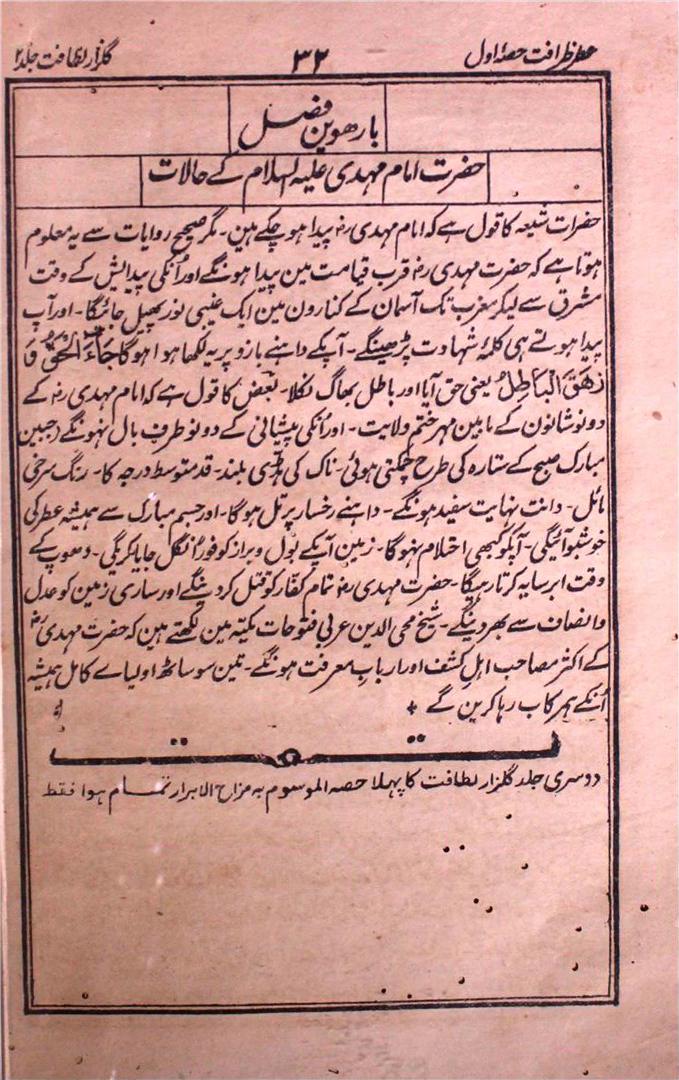 عطر ظرافت حصۂ اول ۳۲ گلزار لطافت جلد ۲
بارھوین فصل
حضرت امام مہدی علیہ السلام کے حالات
حضرات شیعہ کا قول ہے کہ امام مہدی رضہ پیدا ہو چکے ہین۔ مگر صحیح روایات سے یہ معلوم
ہوتا ہے کہ حضرت مہدی رضہ قرب قیامت مین پیدا ہونگے اور اُنکی پیدایش کے وقت
مشرق سے لیکر مغرب تک آسمان کے کنارون مین ایک غیبی نور پھیل جائیگا۔ اور آپ
پیدا ہوتے ہی کلمۂ شہادت پڑھینگے۔ آپکے داہنے بازو پر یہ لکھا ہوا ہوگا جَاءَ الْحَقُّ وَ
زَھَقَ الْبَاطِلُ یعنی حق آیا اور باطل بھاگ نکلا۔ بعض کا قول ہے کہ امام مہدی رضہ کے
دونو شانون کے مابین مہر ختم ولایت۔ اور اُنکی پیشانی کے دونو طرف بال نہونگے (جبین
مبارک صبح کے ستارہ کی طرح چمکتی ہوئی۔ ناک کی ہڈی بلند۔ قد متوسط درجہ کا۔ رنگ سرخی
مائل۔ دانت نہایت سفید ہونگے۔ داہنے رخسار پر تل ہوگا۔ اور جسم مبارک سے ہمیشہ عطر کی
خوشبو آئیگی۔ آپکو کبھی احتلام نہوگا۔ زمین آپکے بول و براز کو فوراً نگل جایا کریگی۔ دھوپ کے
وقت ابر سایہ کرتا رہیگا۔ حضرت مہدی رضہ تمام کفار کو قتل کر دینگے اور ساری زمین کو عدل
و انصاف سے بھر دینگے۔ شیخ محی الدین عربی فتوحات مکیّہ مین لکھتے ہین کہ حضرت مہدی رضہ
کے اکثر مصاحب اہلِ کشف اور اربابِ معرفت ہونگے۔ تین سو ساٹھ اولیاے کامل ہمیشہ
اُنکے ہمرکاب رہا کرین گے
دوسری جلد گلزار لطافت کا پہلا حصہ الموسوم بہ مزاح الابرار تمام ہوا فقط